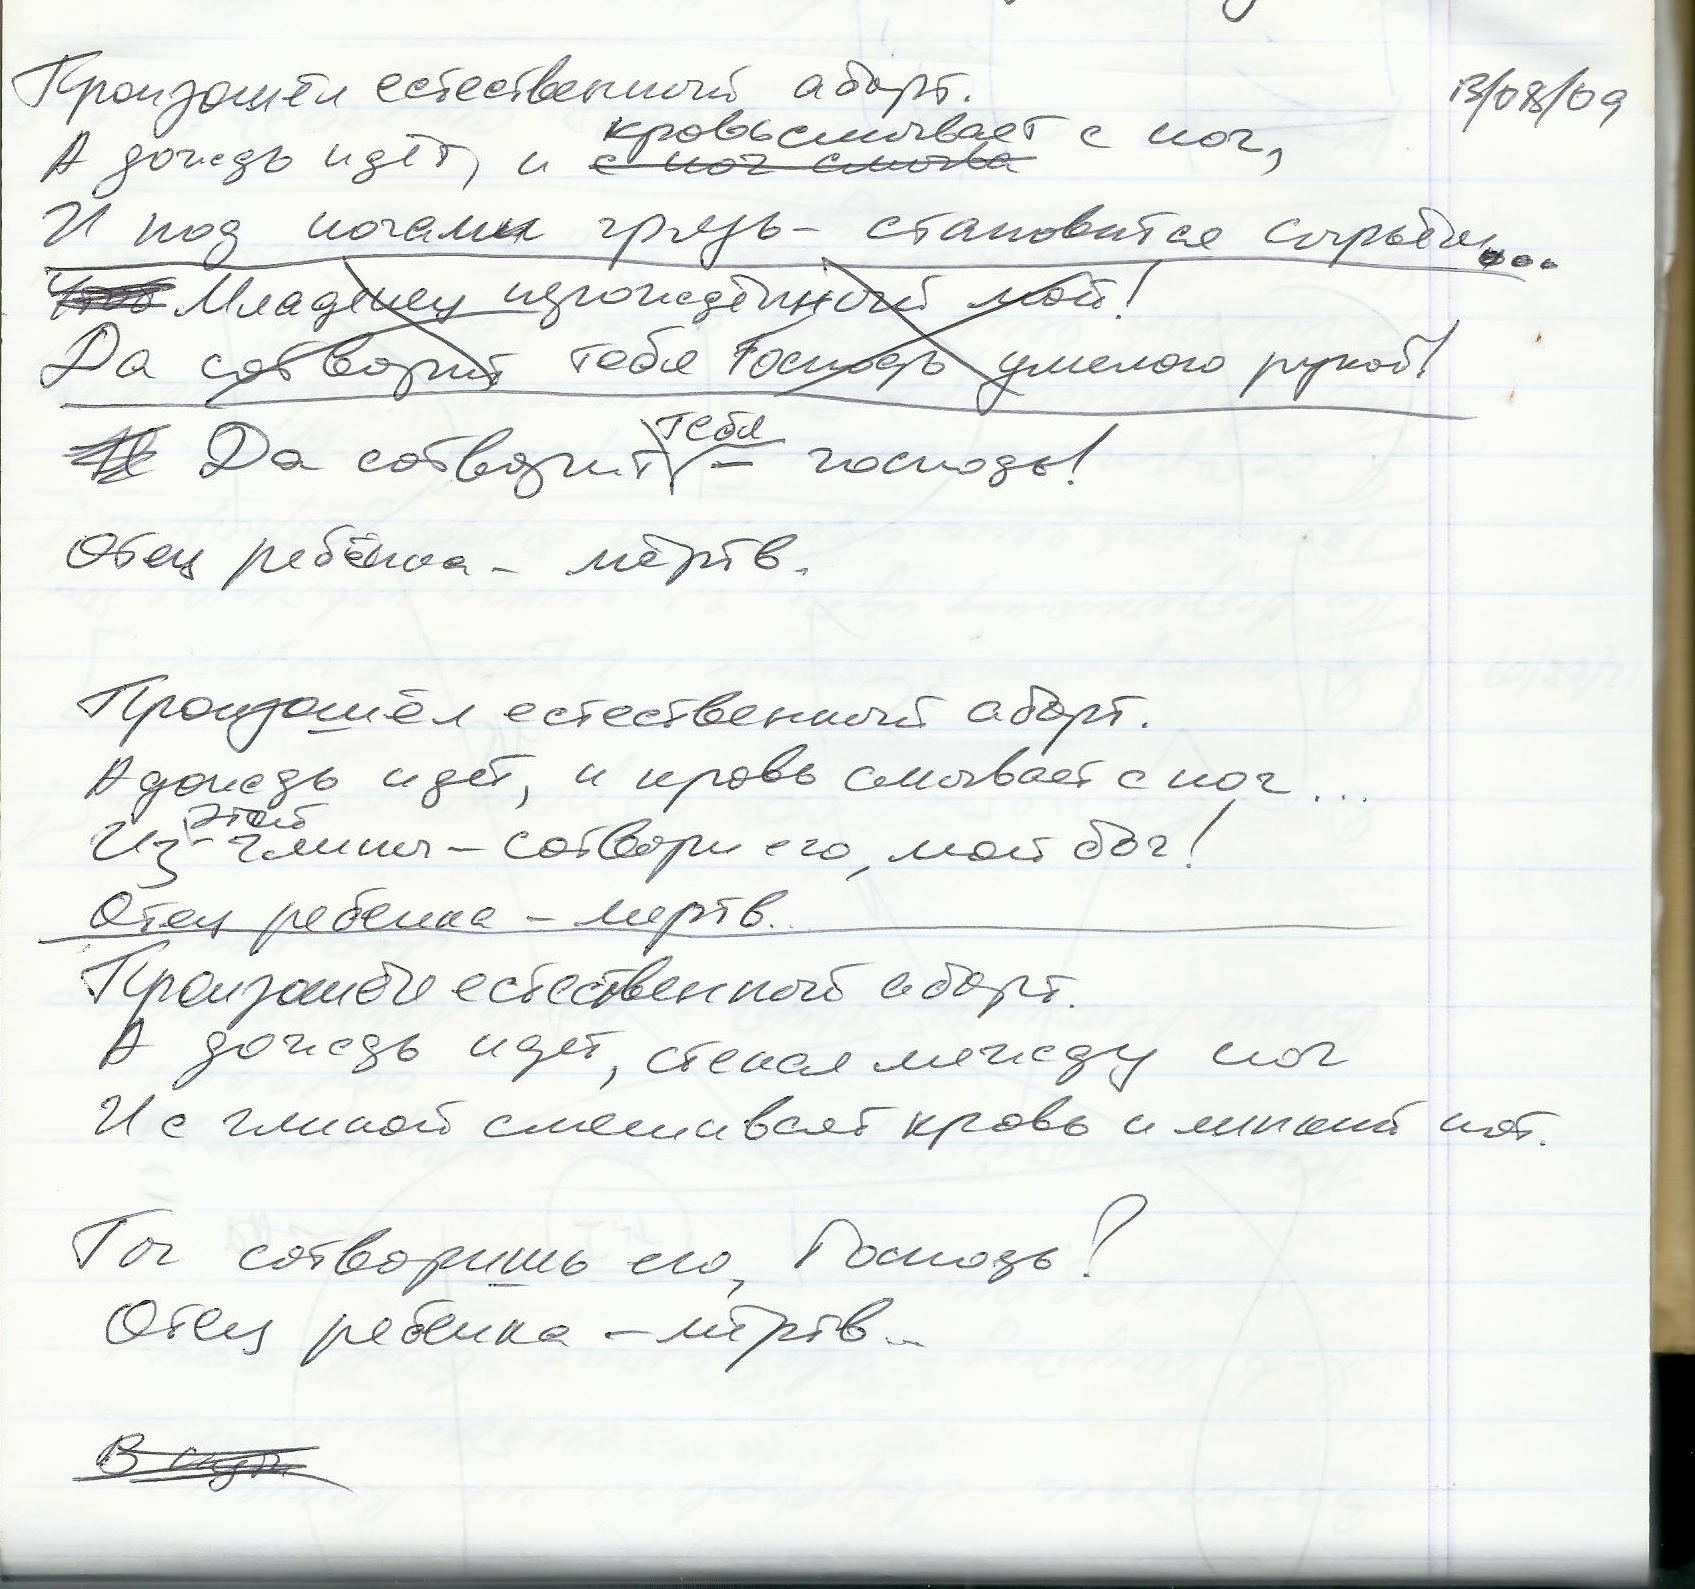 Произошёл естественный аборт. 13/08/09
кровь смывает с ног,
А дождь идёт, и с ног смыва
И под ногами грязь – становится сырьём...
Младенец нерождённый мой!
Да сотворит тебя Господь умелою рукой!
тебя
Да сотворит – господь!
Отец ребёнка – мёртв.
Произошёл естественный аборт.
А дождь идёт, и кровь смывает с ног...
этой
Из глины – сотвори его, мой бог!
Отец ребенка – мертв...
Произошёл естественный аборт.
А дождь идет, стекая между ног
И с глиной смешивает кровь и липкий пот.
Ты сотворишь его, Господь?
Отец ребенка – мёртв...
В